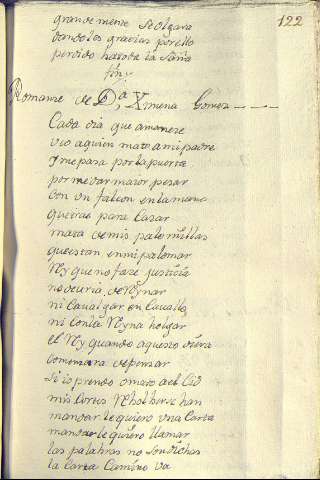 122
grandemente Se olgara
dandoles gracias por ello
perdido harada la Saña
fin
Romanze de D.ª Ximena Gomez
Cada dia que amanese
veo aquien mato ami padre
y me pasa por la puerta
por me dar maior pesar
con un falcon en la mano
que trae para casar
mata de mis palomillas
que estan en mi palomar
Rey que no faze justicia
no deuria de Reynar
ni caualgar en cauallo
ni con la Reyna holgar
el Rey quando aquesto oiera
comensara de pensar
Si io prendo o mato a el Cid
mis Cortes Rebolberse han
mandar le quiero una Carta
mandar le quiero llamar
las palabras no son dichas
la Carta Camino va